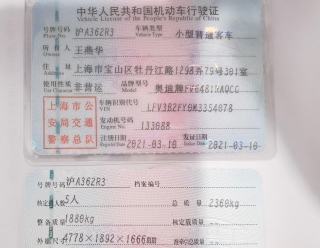 中华人民共和国机动车行驶证
Vehicle License of the People's Republic of China
号牌号码 沪A362R3 车辆类型 小型普通客车
Plate No. Vehicle Type
所有人 王燕华
住址 上海市宝山区牡丹江路1298弄79号301室
使用性质 非营运 品牌型号 奥迪牌
上海市公安局交通警察总队
车辆识别代号
VIN
发动机号码 133088
Engine No.
注册日期 2021-03-10 发证日期 2021-03-10
号牌号码 沪A362R3 档案编号
核定载人数 5人 总质量 2360kg
整备质量 1880kg 核定载质量 --
外廓尺寸 4778×1892×1666mm 准牵引总质量 --